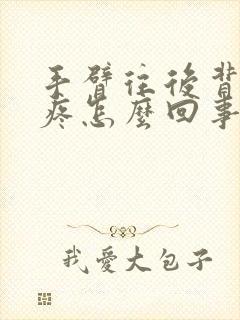 手臂往後背
疼怎麼回事
我愛大包子